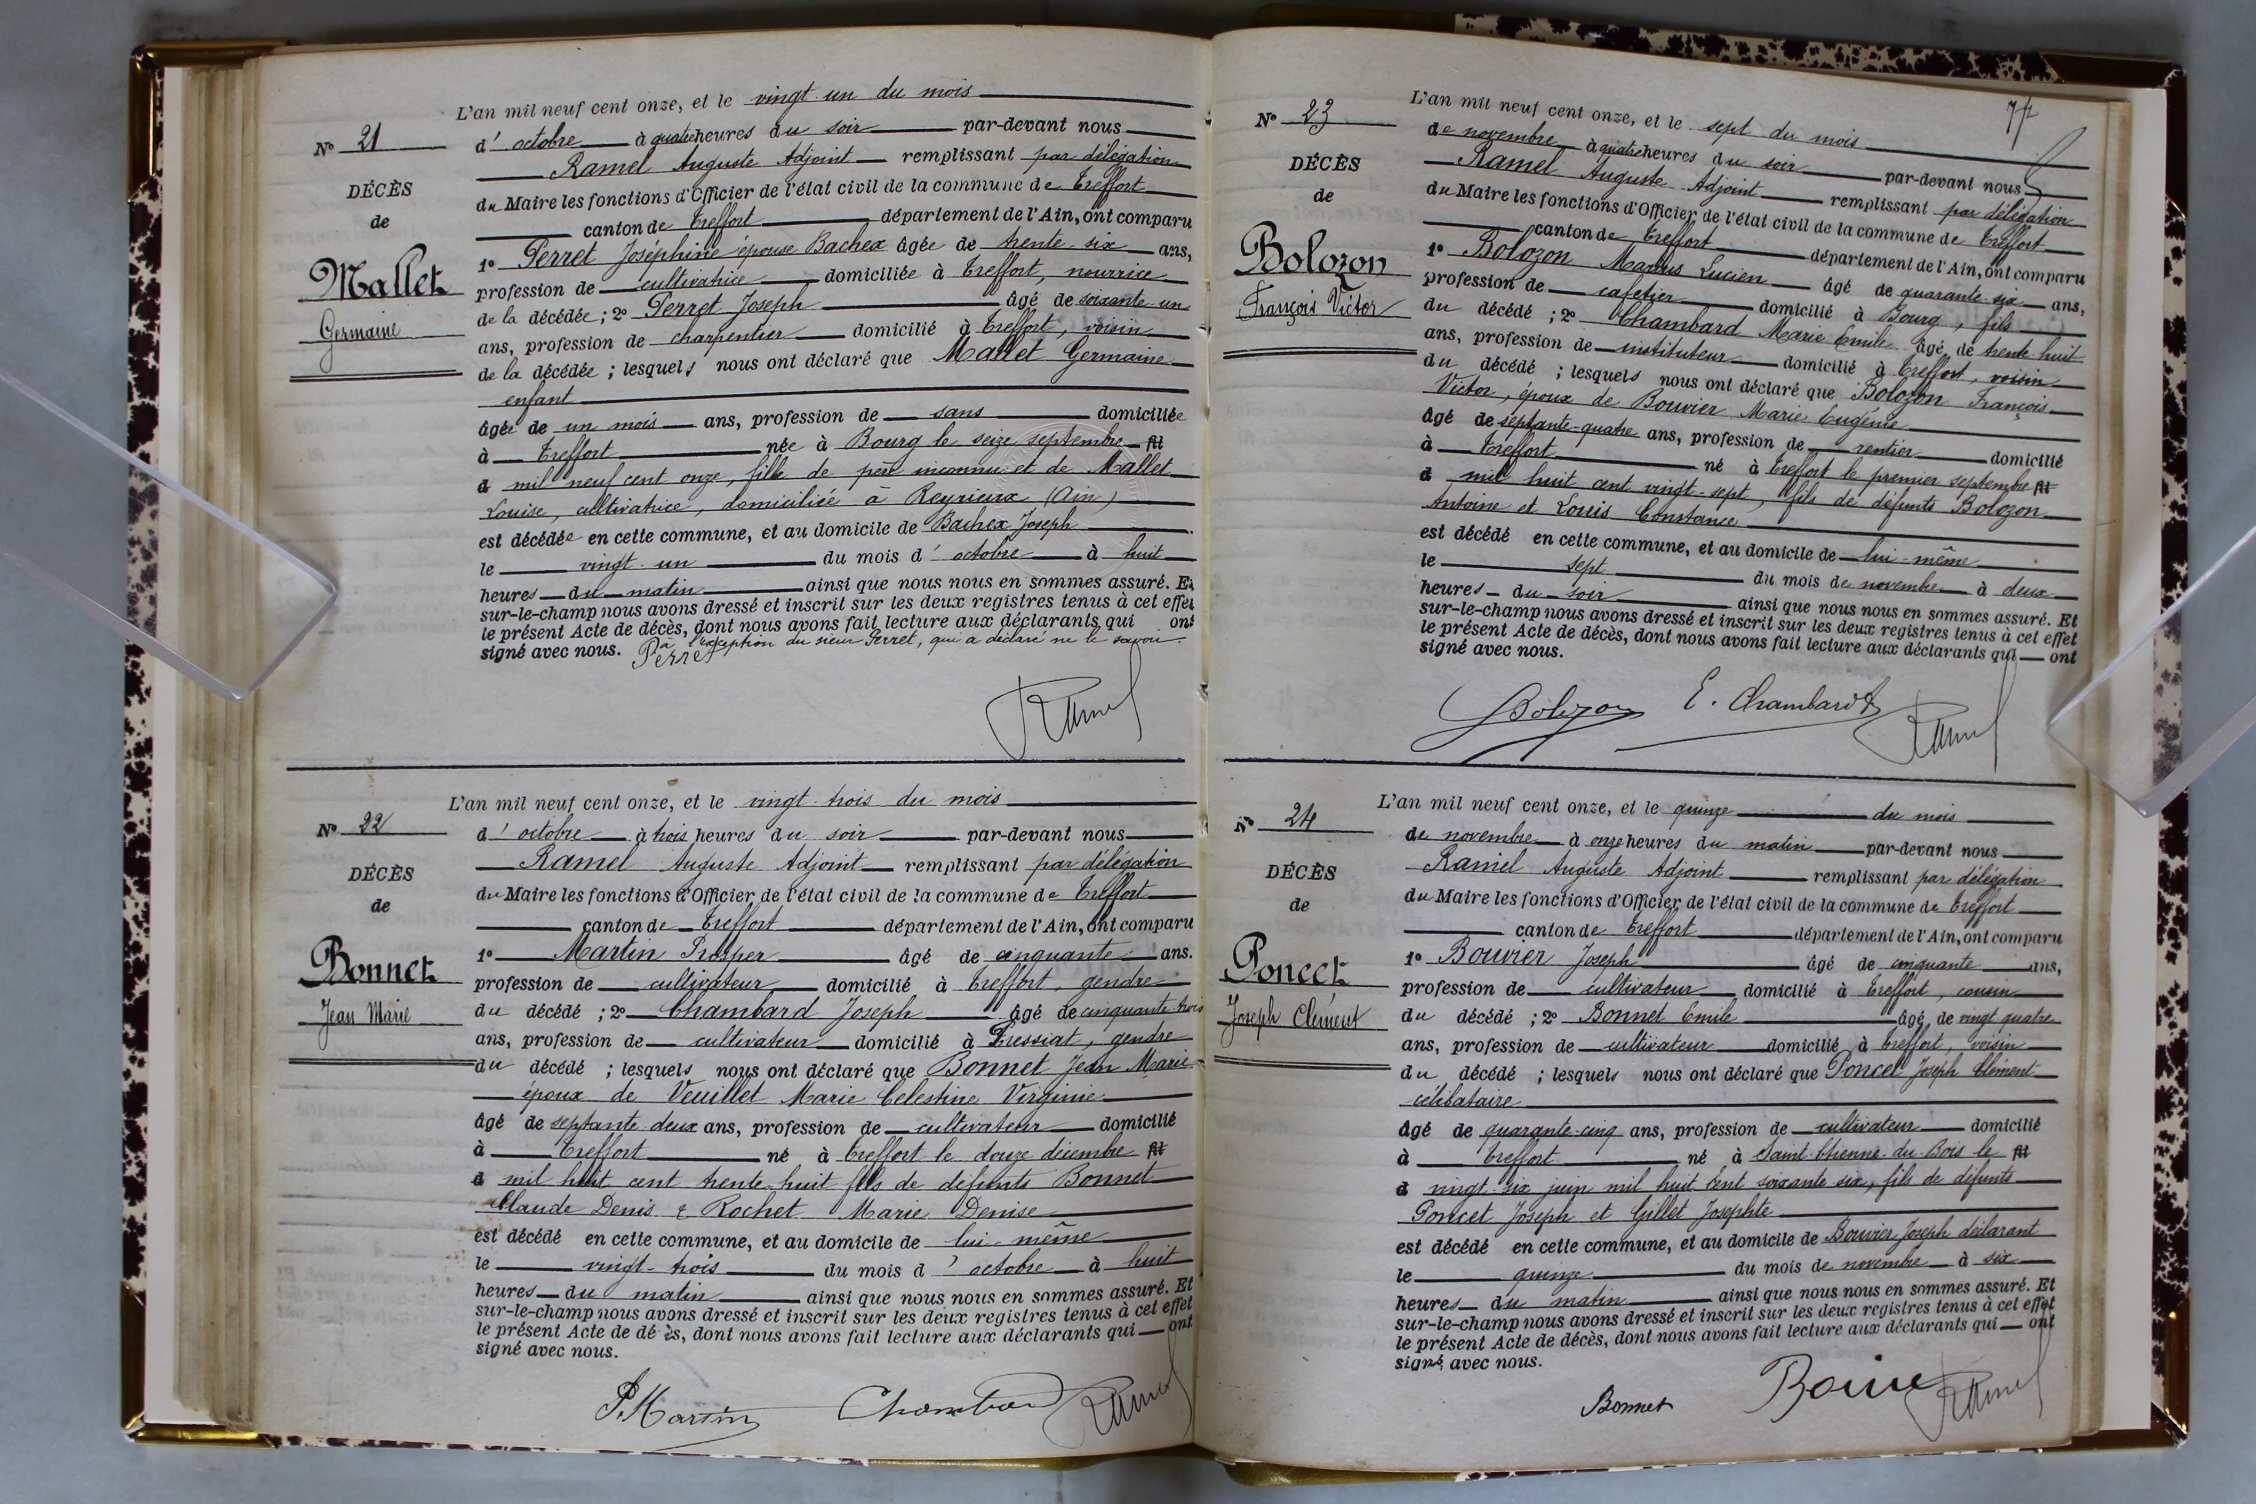 L'an mil neuf cent onze, et le vingt un du mois
Nº 21
d'octobre à quatre heures du soir par-devant nous
Ramel Auguste Adjoint remplissant par délégation
DÉCÈS
du Maire les fonctions d'Officier de l'état civil de la commune de Treffort
de
canton de Treffort département de l'Ain, ont comparu
Mallet
1º Perret Joséphine épouse Bachex âgée de trente six ans,
profession de cultivatrice domiciliée à Treffort, nourrice
Germaine
de la décédée ; 2º Perret Joseph âgé de soixante-un
ans, profession de charpentier domicilié à Treffort, voisin
de la décédée ; lesquels nous ont déclaré que Mallet Germaine
enfant
âgée de un mois ans, profession de sans domiciliée
à Treffort née à Bourg le seize septembre fil
d mil neuf cent onze, fille de père inconnu et de Mallet
Louise, cultivatrice, domiciliée à Reyrieux (Ain)
est décédée en cette commune, et au domicile de Bachex Joseph
le vingt un du mois d'octobre à huit
heures du matin ainsi que nous nous en sommes assuré. Et
sur-le-champ nous avons dressé et inscrit sur les deux registres tenus à cet effet
le présent Acte de décès, dont nous avons fait lecture aux déclarants qui ont
signé avec nous. à l'exception du sieur Perret, qui a déclaré ne le savoir.
Perret
Ramel
L'an mil neuf cent onze, et le vingt trois du mois
Nº 22
d'octobre à trois heures du soir par-devant nous
Ramel Auguste Adjoint remplissant par délégation
DÉCÈS
du Maire les fonctions d'Officier de l'état civil de la commune de Treffort
de
canton de Treffort département de l'Ain, ont comparu
Bonnet
1º Martin Prosper âgé de cinquante ans.
profession de cultivateur domicilié à Treffort, gendre
Jean Marie
du décédé ; 2º Chambard Joseph âgé de cinquante trois
ans, profession de cultivateur domicilié à Pressiat, gendre
du décédé ; lesquels nous ont déclaré que Bonnet Jean Marie
époux de Veuillet Marie Celestine Virginie
âgé de septante deux ans, profession de cultivateur domicilié
à Treffort né à Treffort le douze décembre fil
d mil huit cent trente huit fils de défunts Bonnet
Claude Denis & Rochet Marie Denise
est décédé en cette commune, et au domicile de lui-même
le vingt-trois du mois d'octobre à huit
heures du matin ainsi que nous nous en sommes assuré. Et
sur-le-champ nous avons dressé et inscrit sur les deux registres tenus à cet effet
le présent Acte de dé ès, dont nous avons fait lecture aux déclarants qui ont
signé avec nous.
P. Martin Chambard Ramel
L'an mil neuf cent onze, et le sept du mois
Nº 23
de novembre à quatre heures du soir par-devant nous
Ramel Auguste Adjoint remplissant par délégation
DÉCÈS
du Maire les fonctions d'Officier de l'état civil de la commune de Treffort
de
canton de Treffort département de l'Ain, ont comparu
Bolozon
1º Bolozon Marius Lucien âgé de quarante-six ans,
profession de cafetier domicilié à Bourg, fils
François Victor
du décédé ; 2º Chambard Marie Emile âgé de trente huit
ans, profession de instituteur domicilié à Treffort, voisin
du décédé ; lesquels nous ont déclaré que Bolozon François
Victor, époux de Bouvier Marie Eugénie
âgé de septante-quatre ans, profession de rentier domicilié
à Treffort né à Treffort le premier septembre fil
d mil huit cent vingt-sept, fils de défunts Bolozon
Antoine et Louis Constance
est décédé en cette commune, et au domicile de lui-même
le sept du mois de novembre à deux
heures du soir ainsi que nous nous en sommes assuré. Et
sur-le-champ nous avons dressé et inscrit sur les deux registres tenus à cet effet
le présent Acte de décès, dont nous avons fait lecture aux déclarants qui ont
signé avec nous.
Bolozon E. Chambard Ramel
L'an mil neuf cent onze, et le quinze du mois
Nº 24
de novembre à onze heures du matin par-devant nous
Ramel Auguste Adjoint remplissant par délégation
DÉCÈS
du Maire les fonctions d'Officier de l'état civil de la commune de Treffort
de
canton de Treffort département de l'Ain, ont comparu
Poncet
1º Bouvier Joseph âgé de cinquante ans,
profession de cultivateur domicilié à Treffort, cousin
Joseph Clément
du décédé ; 2º Bonnet Emile âgé de vingt quatre
ans, profession de cultivateur domicilié à Treffort, voisin
du décédé ; lesquels nous ont déclaré que Poncet Joseph Clément
célibataire
âgé de quarante-cinq ans, profession de cultivateur domicilié
à Treffort né à Saint-Etienne-du-Bois le fil
d vingt-six juin mil huit cent soixante six, fils de défunts
Poncet Joseph et Gillet Josephte
est décédé en cette commune, et au domicile de Bouvier Joseph déclarant
le quinze du mois de novembre à six
heures du matin ainsi que nous nous en sommes assuré. Et
sur-le-champ nous avons dressé et inscrit sur les deux registres tenus à cet effet
le présent Acte de décès, dont nous avons fait lecture aux déclarants qui ont
signé avec nous.
Bonnet Ramel